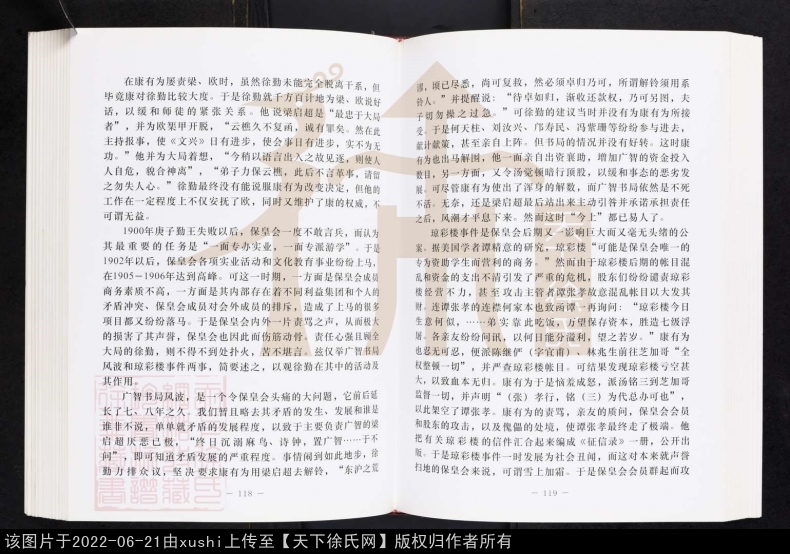 在康有为屡责梁、欧时，虽然徐勤未能完全脱离干系，但
毕竟康对徐勤比较大度。于是徐勤就千方百计地为梁、欧说好
话，以缓和师徒的紧张关系。他说梁启超是“最忠于大局
者”，并为欧榘甲开脱，“云樵久不复函，诚有罪矣。然在此
主持报事，使《文兴》日有进步，使会事日有进步，实不为无
功。”他并为大局着想，“今稍以语言出入之故见逐，则使人
人自危，貌合神离”，“弟子力保云樵，此后不言革事，请留
之勿失人心。”徐勤最终没有能说服康有为改变决定，但他的
工作在一定程度上不仅安抚了欧，同时又维护了康的权威，不
可谓无益。
1900年庚子勤王失败以后，保皇会一度不敢言兵，而认为
其最重要的任务是“一面专办实业，一面专派游学”。于是
1902年以后，保皇会各项实业活动和文化教育事业纷纷上马，
在1905－1906年达到高峰。可这一时期，一方面是保皇会成员
商务素质不高，一方面是其内部存在着不同利益集团和个人的
矛盾冲突、保皇会成员对会外成员的排斥，造成了上马的很多
项目都又纷纷落马。于是保皇会内外一片责骂之声，从而极大
的损害了其声誉，保皇会也因此而伤筋动骨。责任心强且顾全
大局的徐勤，则不得不到处扑火，苦不堪言。兹仅举广智书局
风波和琼彩楼事件两事，简要述之，以观徐勤在其中的活动及
其作用。
广智书局风波，是一个令保皇会头痛的大问题，它前后延
长了七、八年之久。我们暂且略去其矛盾的发生、发展和谁是
谁非不说，单单就矛盾的发展程度，以致于主要负责广智的梁
启超厌恶已极，“终日沉溺麻鸟、诗钟，置广智……于不
问”，即可知道矛盾发展的严重程度。事情闹到如此地步，徐
勤力排众议，坚决要求康有为用梁启超去解铃，“东沪之
－ 118 －
，顷已尽悉，尚可复救，然必须卓归乃可，所谓解铃须用系
铃人。”并提醒说：“待卓如归，渐收还款权，乃可另图，夫
子切勿操之过急。”可徐勤的建议当时并没有为康有为所接
受。于是何天柱、刘汝兴、邝寿民、冯紫珊等纷纷参与进去，
献计献策，甚至亲自上阵。但书局的情况并没有好转。这时康
有为也出马解围，他一面亲自出资襄助，增加广智的资金投入
数目，另一方面，又令汤觉顿暗行顶股，以缓和事态的恶劣发
展。可尽管康有为使出了浑身的解数，而广智书局依然是不死
不活。无奈，还是梁启超最后站出来主动引咎并承诺承担责任
之后，风潮才平息下来。然而这时“今上”都已易人了。
琼彩楼事件是保皇会后期又一影响巨大而又毫无头绪的公
案。据美国学者谭精意的研究，琼彩楼“可能是保皇会唯一的
专为资助学生而营利的商务。”然而由于琼彩楼后期的帐目混
乱和资金的支出不清引发了严重的危机，股东们纷纷谴责琼彩
楼经营不力，甚至攻击主管者谭张孝故意混乱帐目以大发其
财。连谭张孝的连襟何家本也致函谭一再询问：“琼彩楼今日
生意何似，……弟实靠此吃饭，万望保存资本，胜造七级浮
屠。各亲友纷纷问讯，以何日能分溢利，望之若岁。”康有为
也忍无可忍，便派陈继俨（字宜甫）、林兆生前往芝加哥“全
权整顿一切”，并严查琼彩楼帐目。可结果发现琼彩楼亏空甚
大，以致血本无归。康有为于是恼羞成怒，派汤铭三到芝加哥
监督一切，并声明“（张）孝行，铭（三）为代总办可也”，
以此架空了谭张孝。康有为的责骂，亲友的质问，保皇会会员
和股东的攻击，以及傀儡的处境，使谭张孝最终走了极端。他
把有关琼彩楼的信件汇合起来编成《征信录》一册，公开出
版。于是琼彩楼事件一时发展为社会丑闻，而这对本来就声誉
扫地的保皇会来说，可谓雪上加霜。于是保皇会会员群起而攻
－ 119 －
该图片于2022-06-21由xushi上传至【天下徐氏网】版权归作者所有